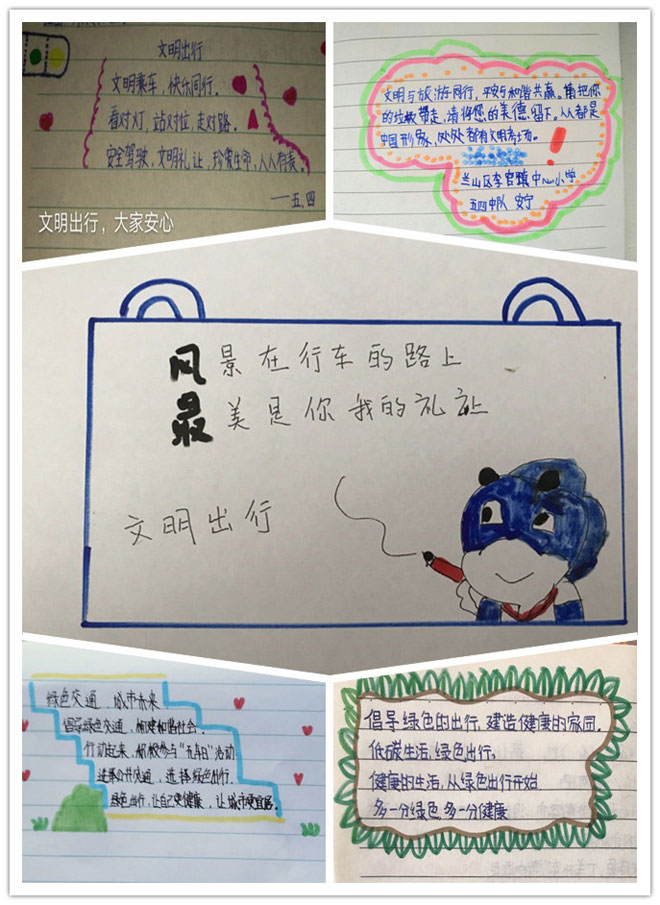 文明出行
文明乘车，快乐同行。
看对灯，站对位，走对路。
安全驾驶，文明礼让，珍爱生命，人人有责。
——五.四
文明出行，大家安心
文明与旅游同行，平安与和谐共赢。请把你
的垃圾带走，请将您的美德留下。人人都是
中国形象，处处都有文明考场。
兰山区李官镇中心小学
五四中队 安宁
风景在行车的路上
最美是你我的礼让
文明出行
绿色交通，城市未来
倡导绿色交通，构建和谐社会。
行动起来，积极参与“无车日”活动
选择公共交通，选择绿色出行。
绿色出行，让自己更健康，让城市更宜居。
倡导绿色的出行，建造健康的家园。
低碳生活，绿色出行。
健康的生活，从绿色出行开始
多一分绿色，多一分健康